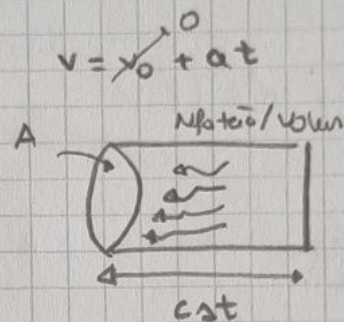 0
v = v₀ + at
A
Nfoton/volum
cΔt